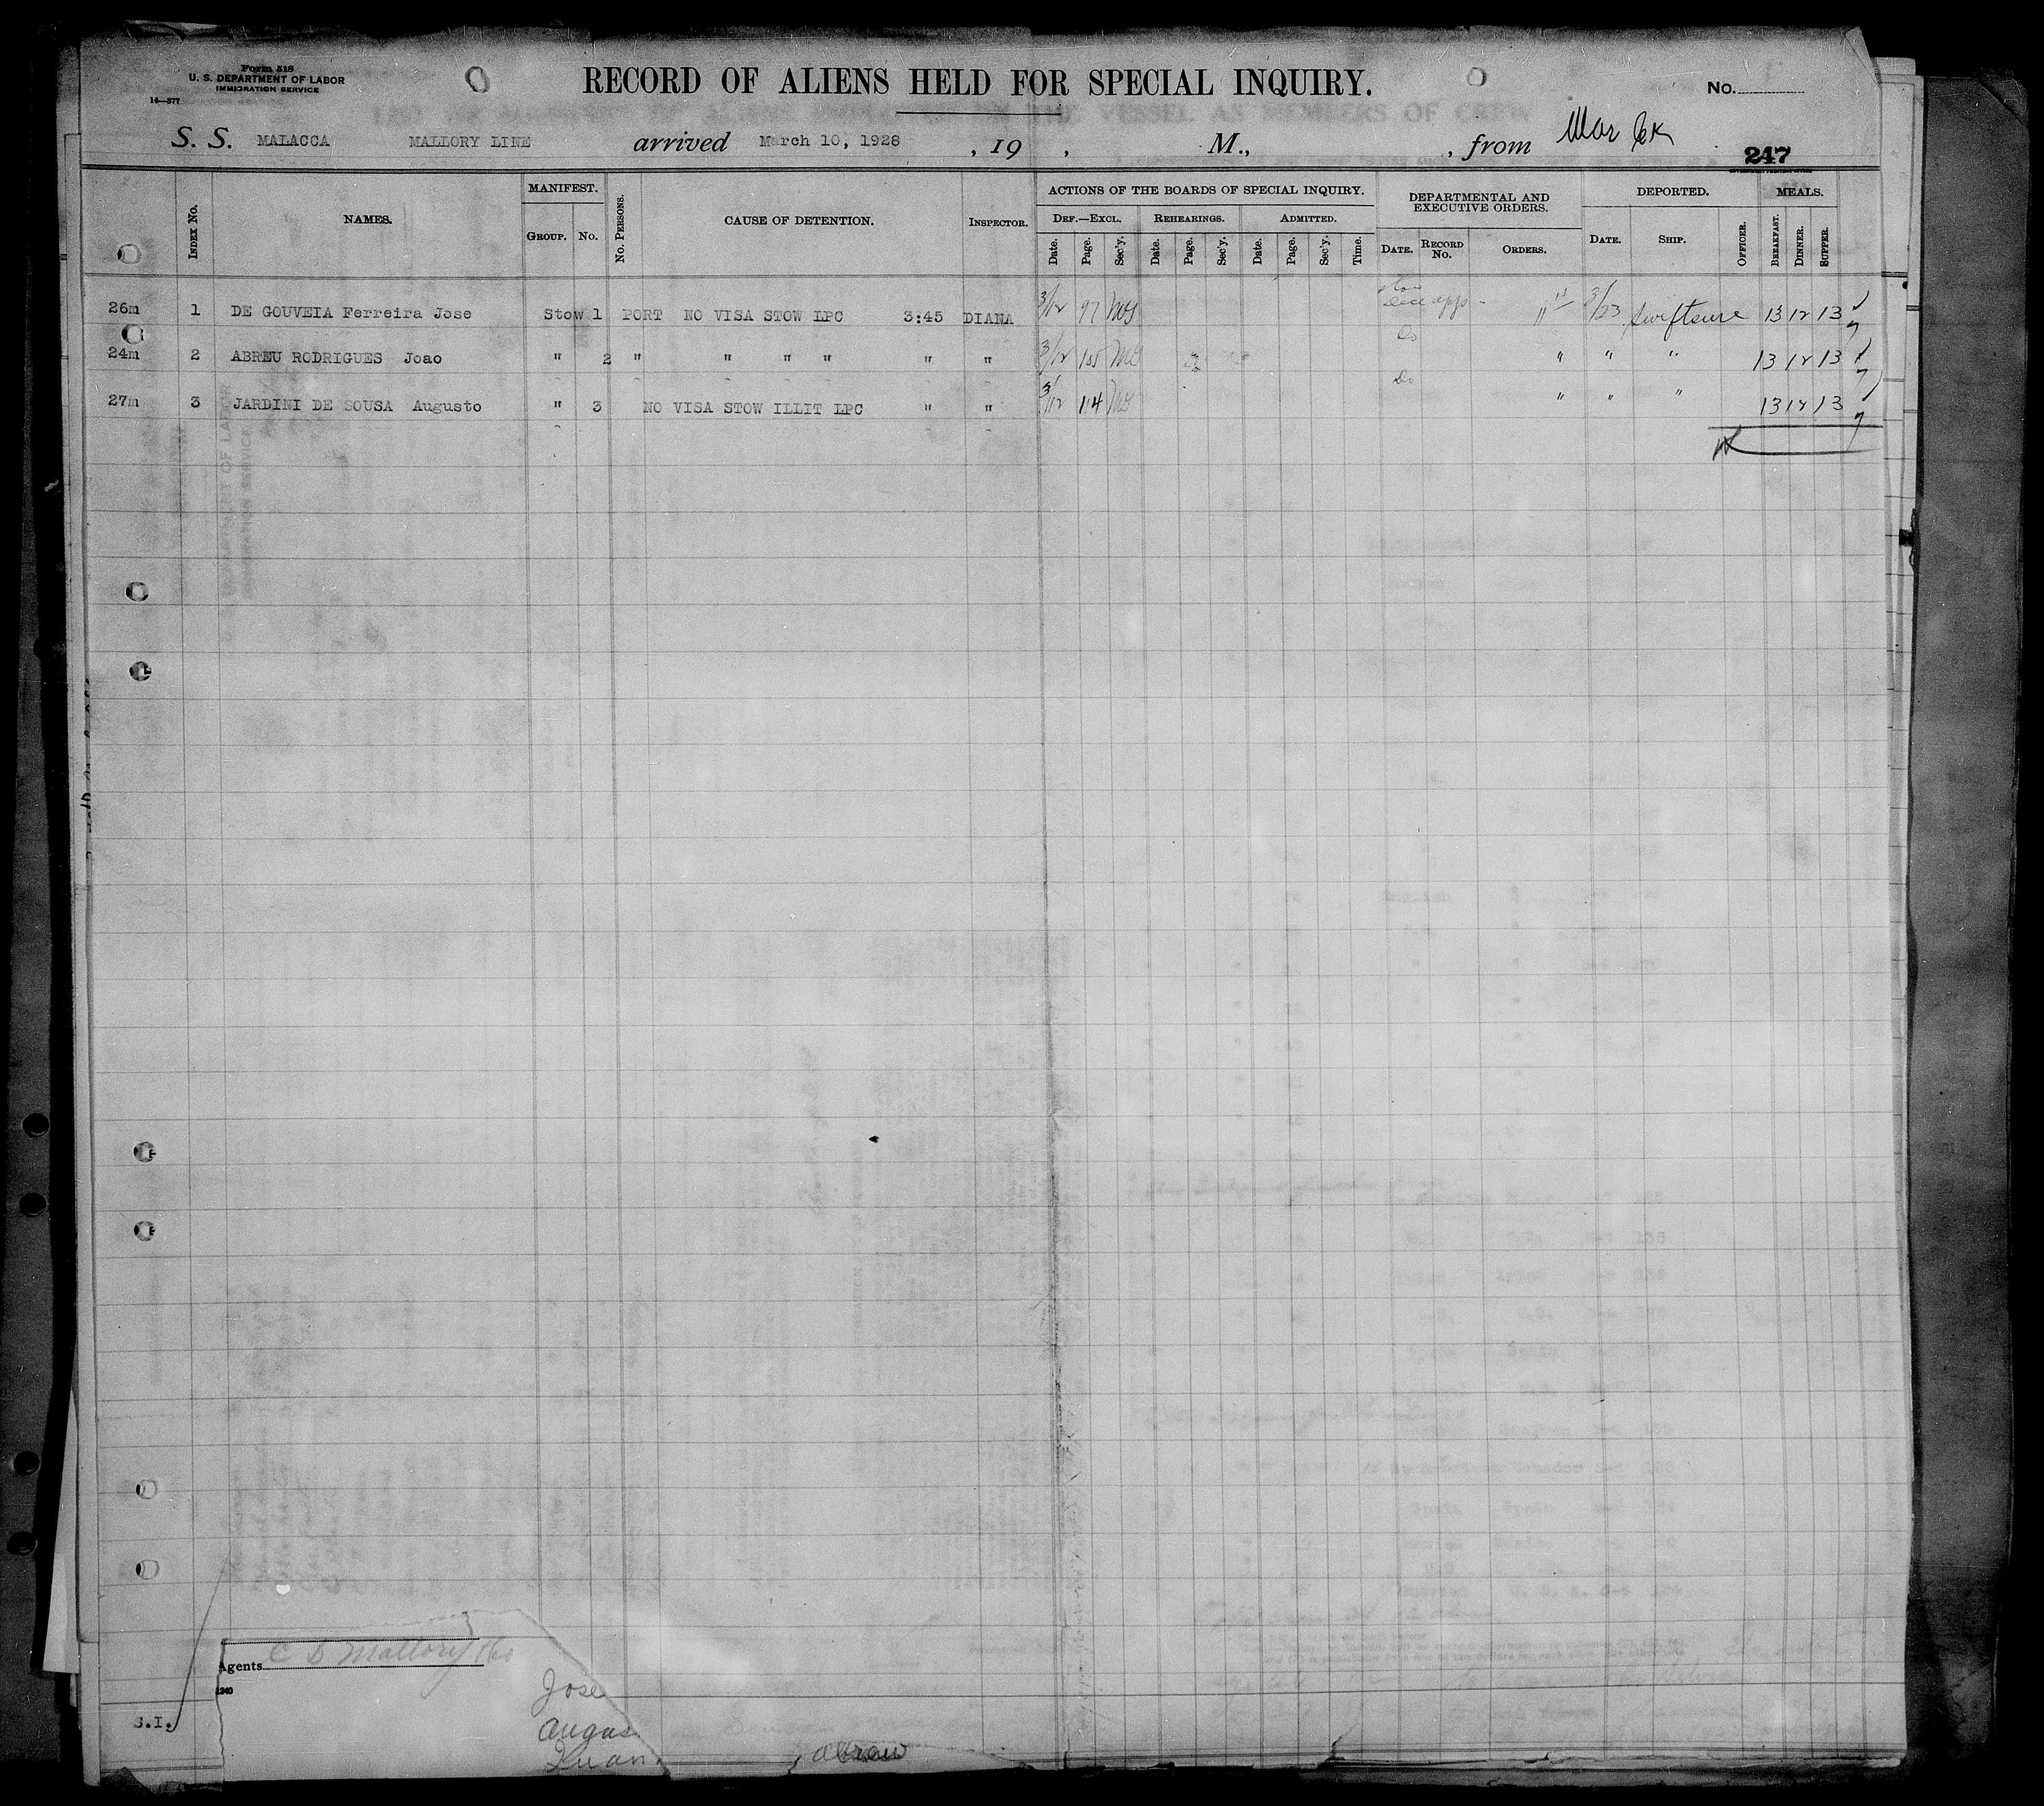 Form 518
U. S. DEPARTMENT OF LABOR
IMMIGRATION SERVICE
14—377
RECORD OF ALIENS HELD FOR SPECIAL INQUIRY.
No.
S. S. MALACCA MALLORY LINE arrived March 10, 1928 , 19 , M., , from
247
INDEX No. NAMES. MANIFEST. GROUP. No. No. PERSONS. CAUSE OF DETENTION. INSPECTOR. ACTIONS OF THE BOARDS OF SPECIAL INQUIRY. DEF.—EXCL. REHEARINGS. ADMITTED. DEPARTMENTAL AND EXECUTIVE ORDERS. DEPORTED. MEALS.
Date. Page. Sec'y. Date. Page. Sec'y. Date. Page. Sec'y. Time. DATE. RECORD No. ORDERS. DATE. SHIP. OFFICER. BREAKFAST. DINNER. SUPPER.
26m 1 DE GOUVEIA Ferreira Jose Stow 1 PORT NO VISA STOW LPC 3:45 DIANA 3/12 97 3/23 Swiftsure 13 12 13
24m 2 ABREU RODRIGUES Joao " 2 " " " " " " 3/12 Do " " " 13 12 13
27m 3 JARDINI DE SOUSA Augusto " 3 NO VISA STOW ILLIT LPC " " 3/12 114 Do " " " 13 12 13
Agents C D Mallory &Co
1240
Jose
S.I.
Augus
Juan
Abreu